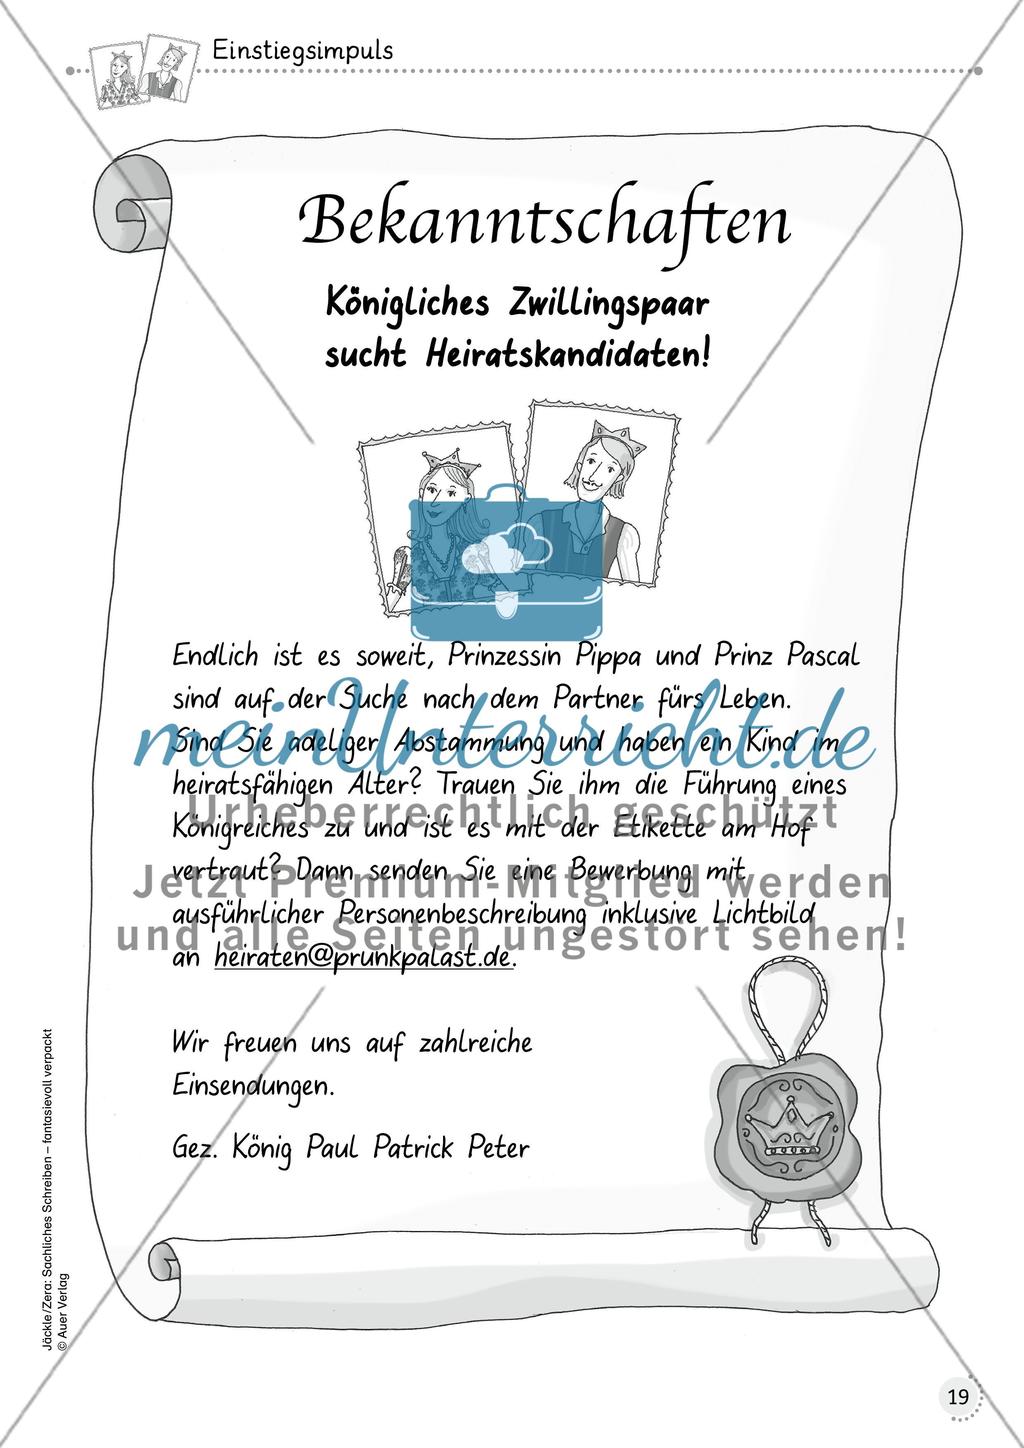 Einstiegsimpuls
Bekanntschaften
Königliches Zwillingspaar
sucht Heiratskandidaten!
Endlich ist es soweit, Prinzessin Pippa und Prinz Pascal
sind auf der Suche nach dem Partner fürs Leben.
meinUnterricht.de
Sind Sie adeliger Abstammung und haben ein Kind im
heiratsfähigen Alter? Trauen Sie ihm die Führung eines
Urheberrechtlich geschützt
Königreiches zu und ist es mit der Etikette am Hof
vertraut? Dann senden Sie eine Bewerbung mit
Jetzt Premium-Mitglied werden
ausführlicher Personenbeschreibung inklusive Lichtbild
und alle Seiten ungestört sehen!
an heiraten@prunkpalast.de.
Wir freuen uns auf zahlreiche
Einsendungen.
Gez. König Paul Patrick Peter
Jäckle/Zera: Sachliches Schreiben – fantasievoll verpackt
© Auer Verlag
19